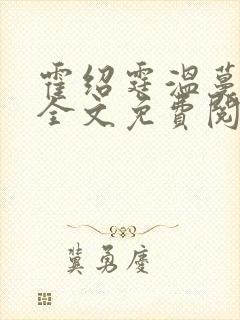 霍绍霆温蔓
全文免费阅
冀勇庆